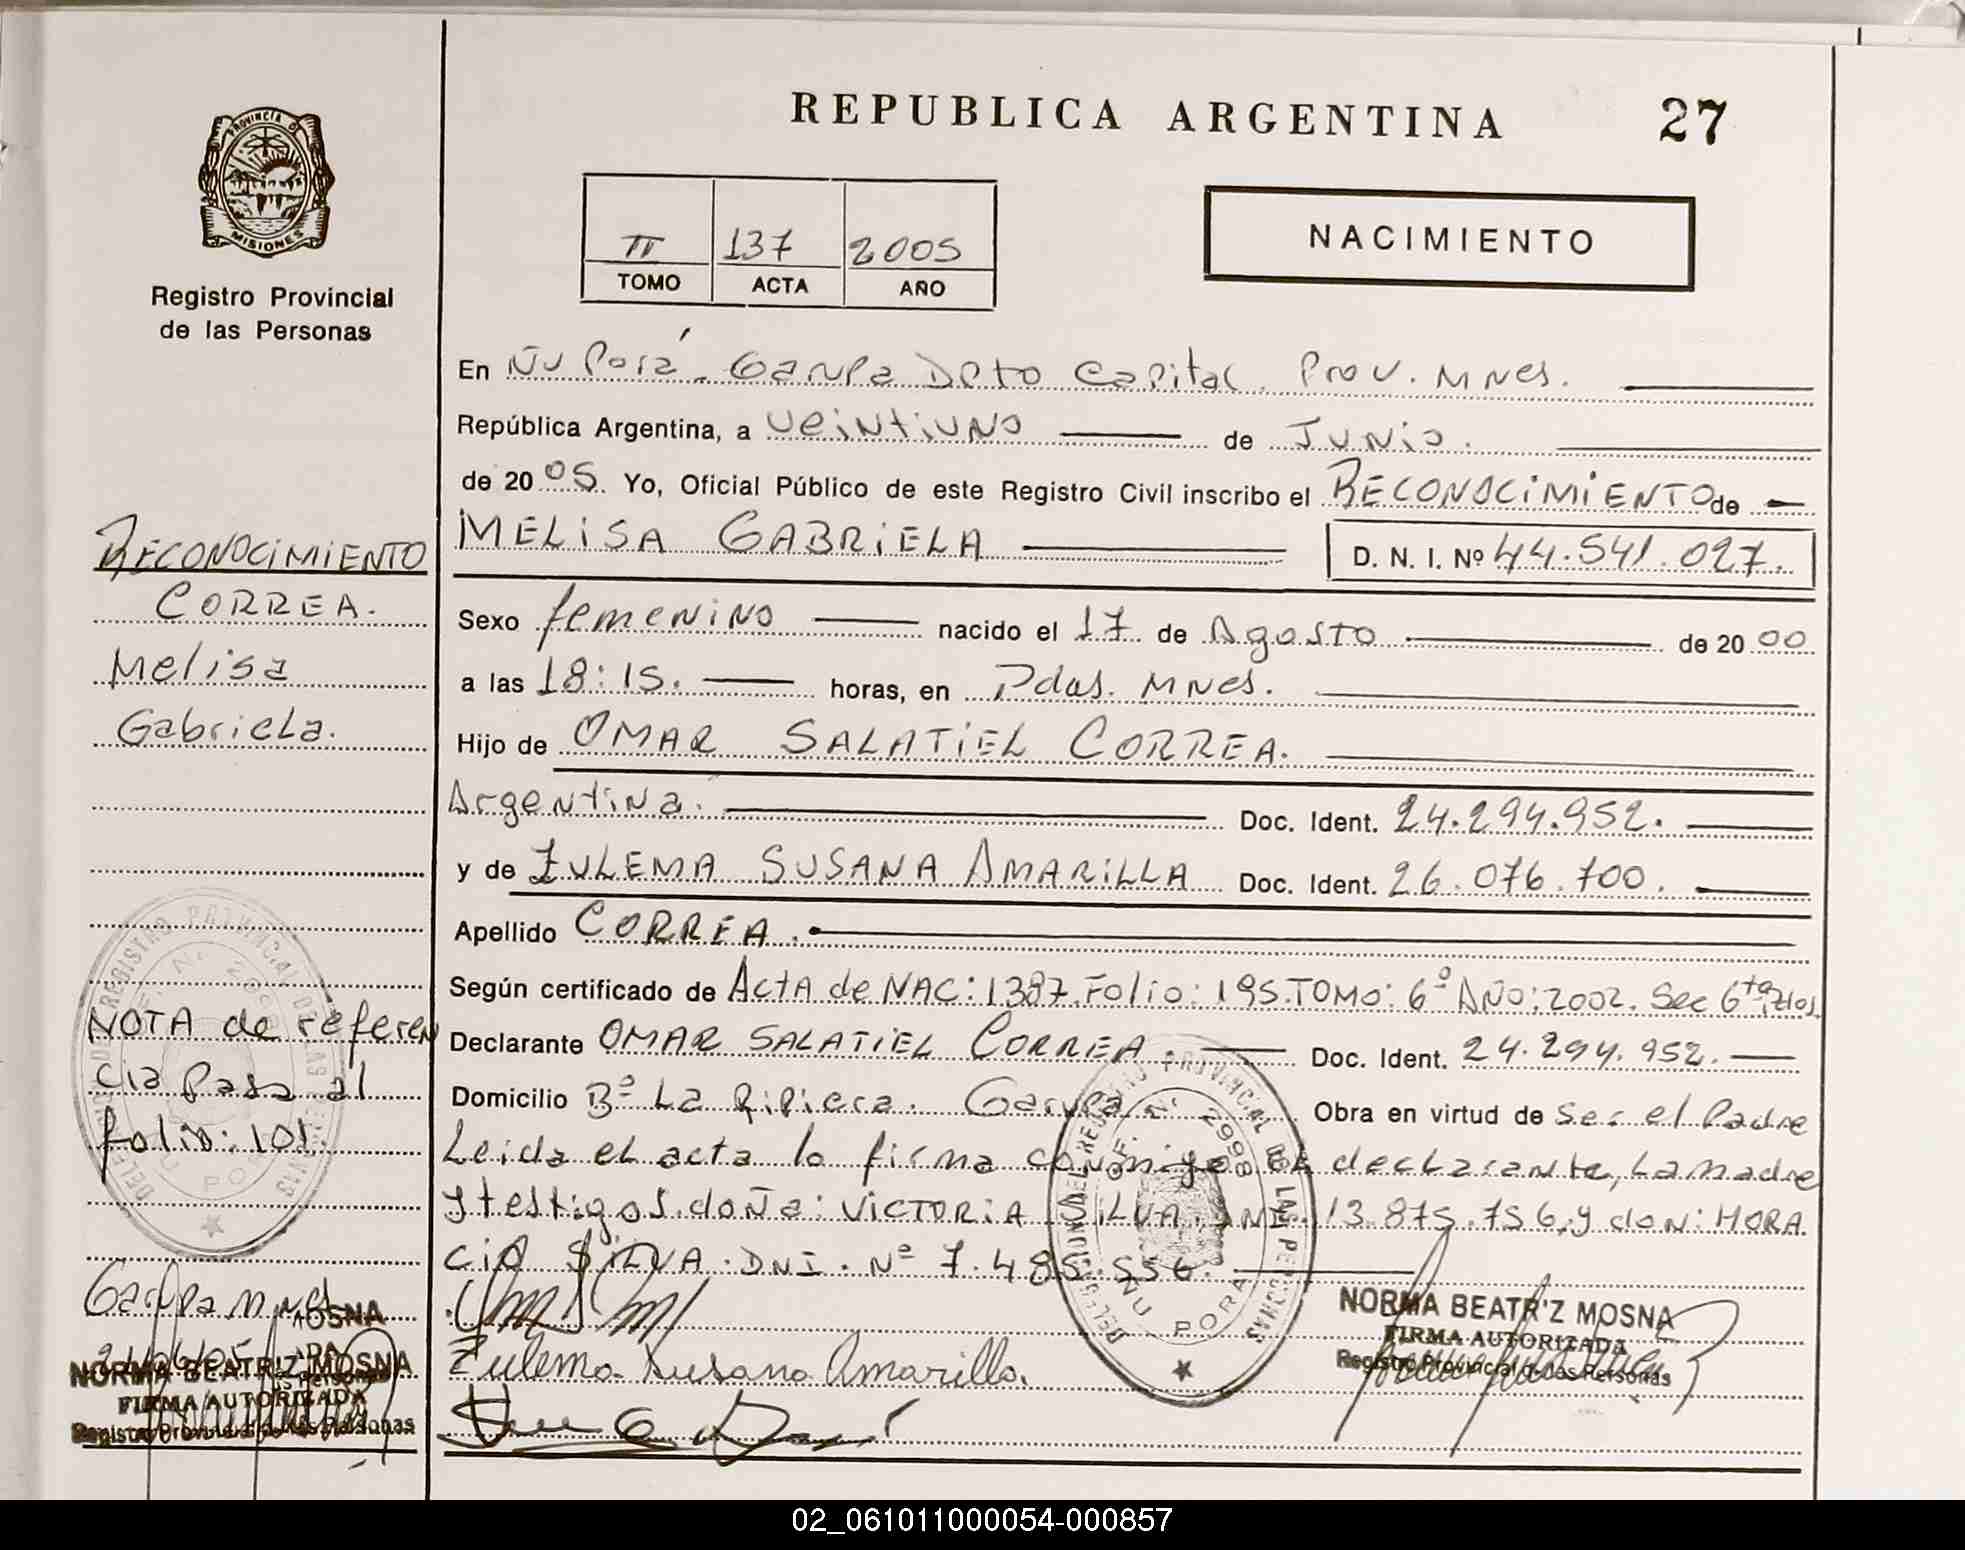 REPUBLICA ARGENTINA
27
PROVINCIA DE
MISIONES
Registro Provincial
de las Personas
II 137 2005
TOMO ACTA AÑO
NACIMIENTO
En Ñu Porá. Garupa Dpto Capital. Prov. Mnes.
República Argentina, a veintiuno de Junio.
de 2005. Yo, Oficial Público de este Registro Civil inscribo el RECONOCIMIENTO de
MELISA GABRIELA D. N. I. Nº 44.541.027.
Sexo femenino nacido el 17 de Agosto de 2000
a las 18:15. horas, en Pdas. Mnes.
Hijo de OMAR SALATIEL CORREA.
Argentina. Doc. Ident. 24.294.952.
y de ZULEMA SUSANA AMARILLA Doc. Ident. 26.076.700.
Apellido CORREA.
Según certificado de Acta de NAC: 1387. Folio: 195. TOMO: 6º AÑO: 2002. Sec 6ta
Declarante OMAR SALATIEL CORREA. Doc. Ident. 24.294.952.
Domicilio Bº La Ripiera. Garupa Obra en virtud de Ser el Padre
Leida el acta lo firma conmigo el declarante, La madre
y testigos. doña: VICTORIA SILVA. DNI. 13.875.756, y don: HORA
CIO SILVA. DNI. Nº 7.485.556.
Zulema Susana Amarilla.
NORMA BEATRIZ MOSNA
FIRMA AUTORIZADA
Registro Provincial de las Personas
DELEGACION DEL REGISTRO PROVINCIAL DE LAS PERSONAS
OF. Nº 2998
ÑU PORA
RECONOCIMIENTO
CORREA.
Melisa
Gabriela.
NOTA de referen
cia Pasa al
folio: 101.
DELEGACION DEL REGISTRO PROVINCIAL DE LAS PERSONAS
OF. Nº 2998
ÑU PORA
Garupa Mnes
21/06/05
NORMA BEATRIZ MOSNA
FIRMA AUTORIZADA
Registro Provincial de las Personas
02_061011000054-000857